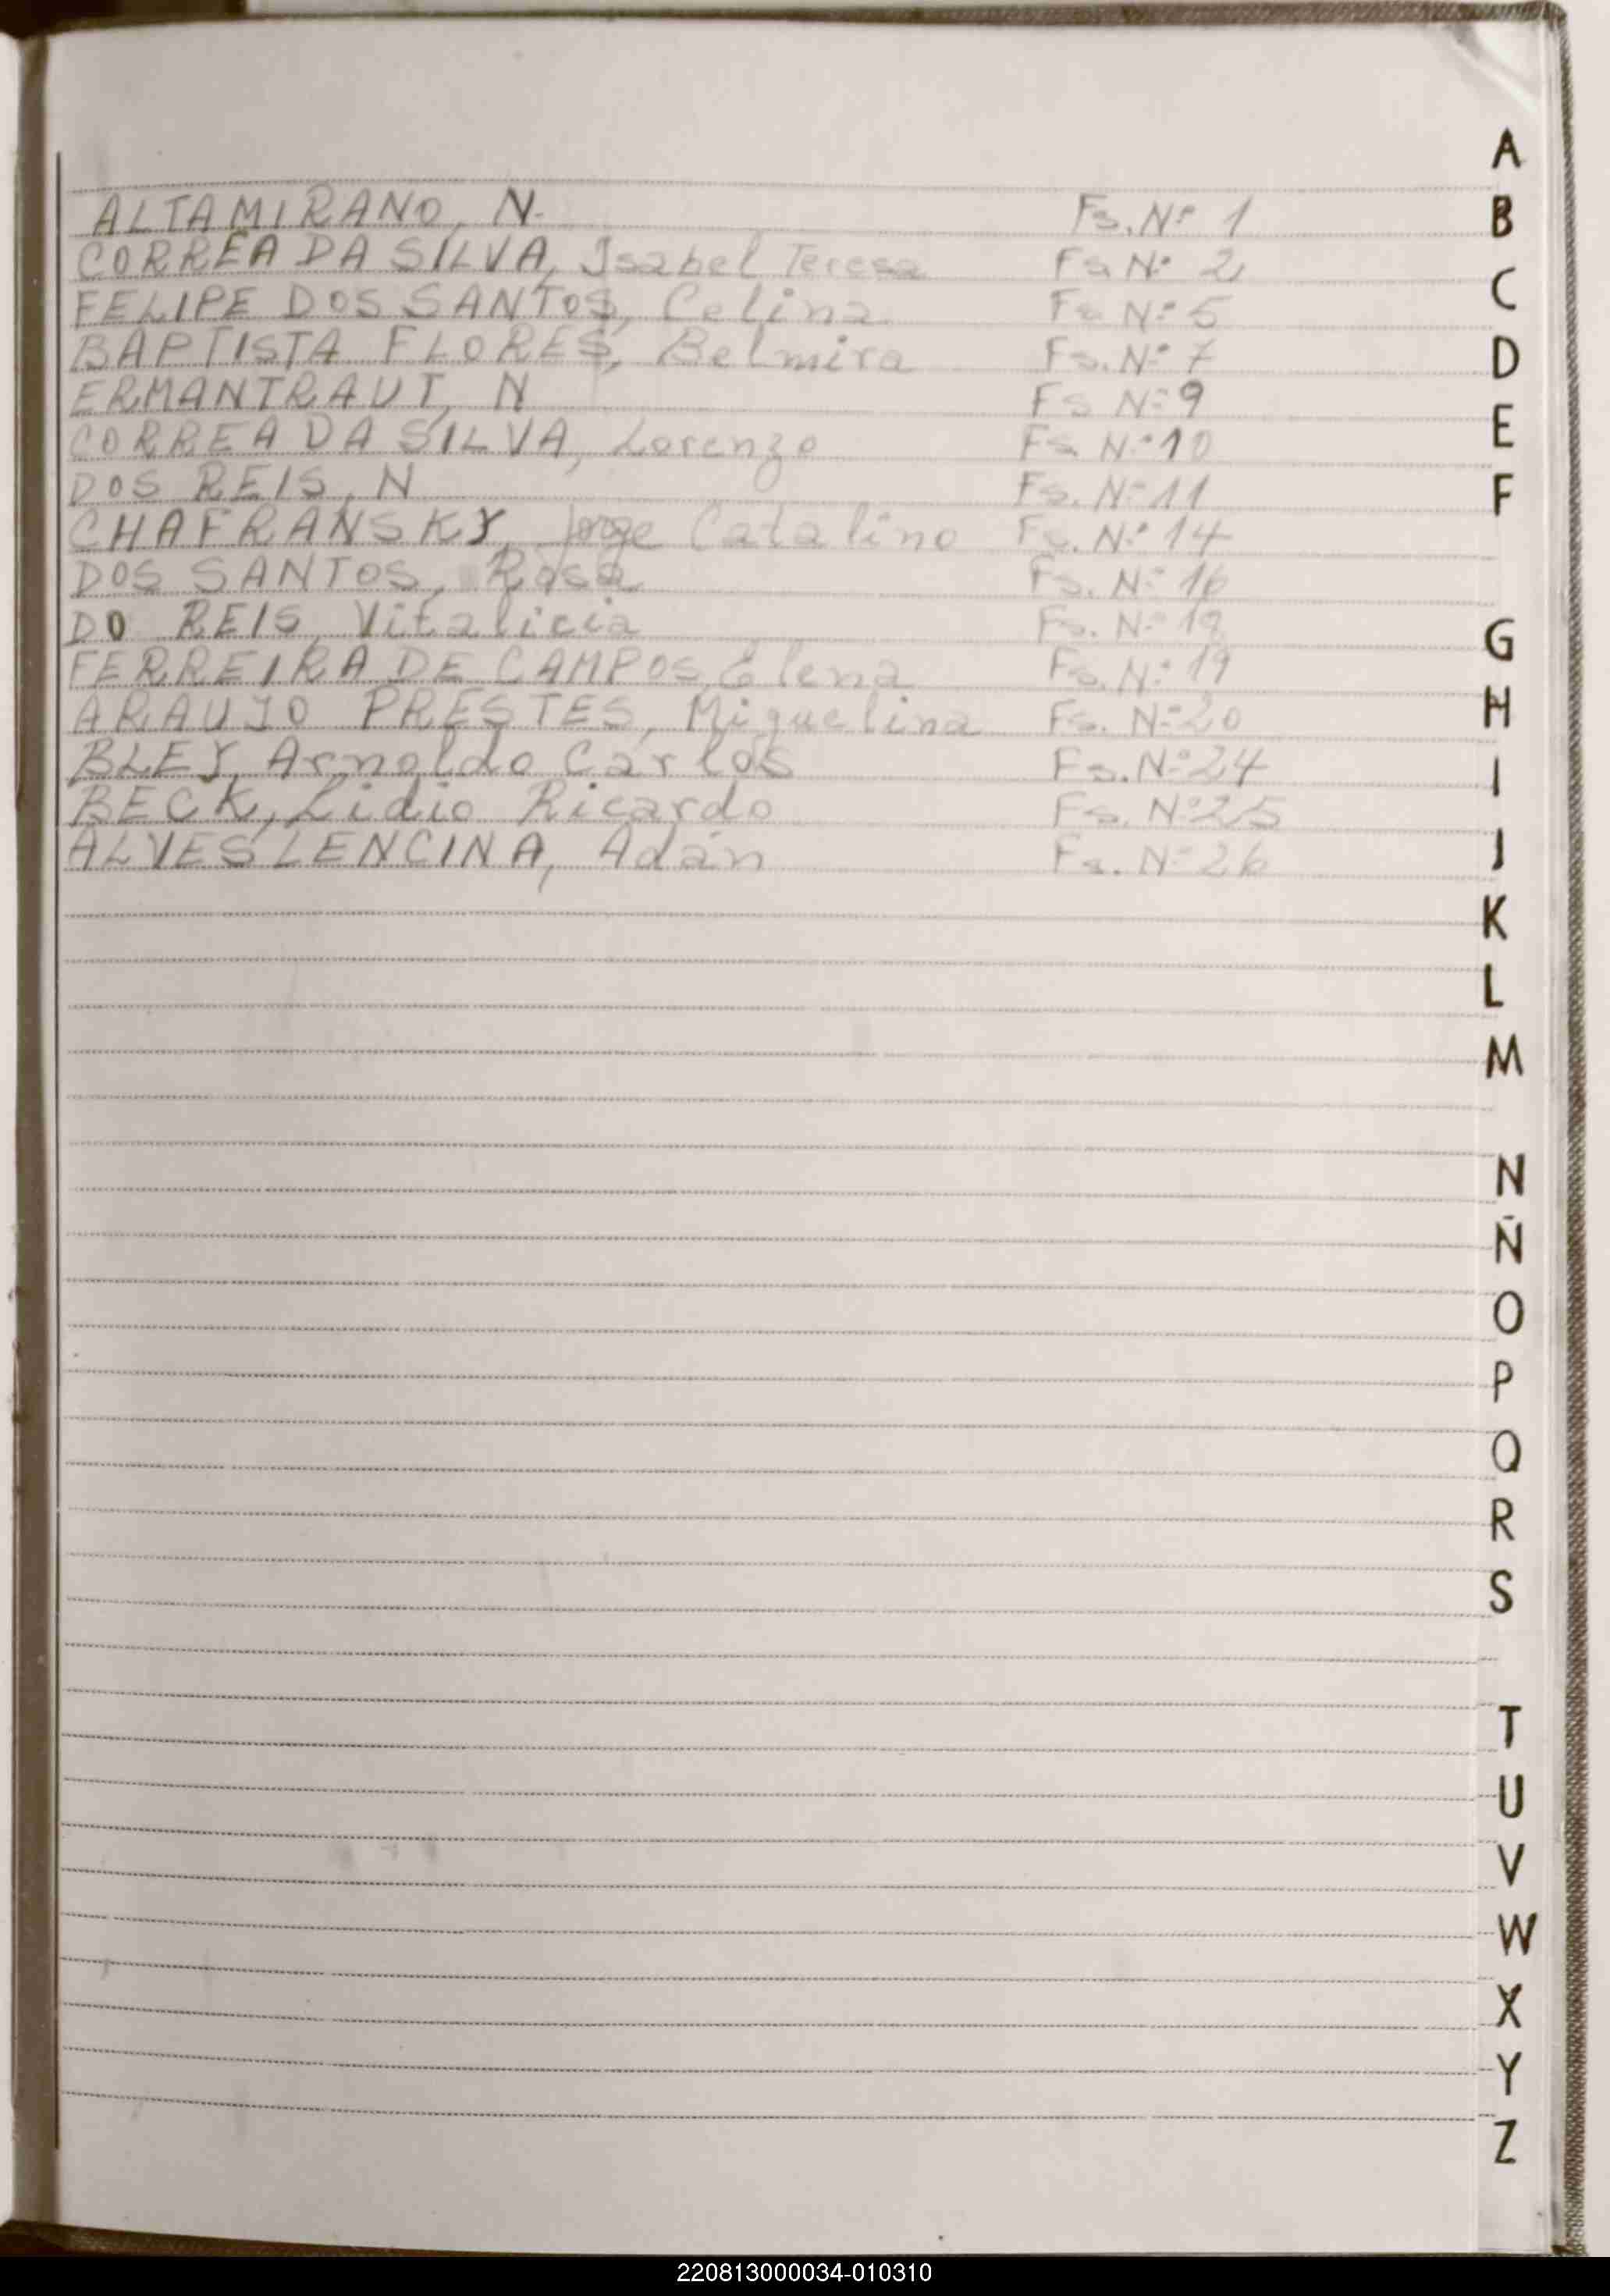 ALTAMIRANO, N. Fs. Nº 1
CORRÊA DA SILVA, Isabel Teresa Fs Nº 2
FELIPE DOS SANTOS, Celina Fs Nº 5
BAPTISTA FLORES, Belmira Fs. Nº 7
ERMANTRAUT, N Fs Nº 9
CORREA DA SILVA, Lorenzo Fs. Nº 10
DOS REIS, N Fs. Nº 11
CHAFRANSKY, Jorge Catalino Fs. Nº 14
DOS SANTOS, Rosa Fs. Nº 16
DO REIS, Vitalicia Fs. Nº
FERREIRA DE CAMPOS, Elena Fs. Nº 19
ARAUJO PRESTES, Miguelina Fs. Nº 20
BLEY, Arnoldo Carlos Fs. Nº 24
BECK, Lidio Ricardo Fs. Nº 25
ALVES LENCINA, Adán Fs. Nº 26
A
B
C
D
E
F
G
H
I
J
K
L
M
N
Ñ
O
P
Q
R
S
T
U
V
W
X
Y
Z
220813000034-010310